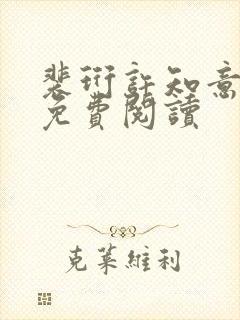 裴衍許知意
免費閱讀
克萊維利